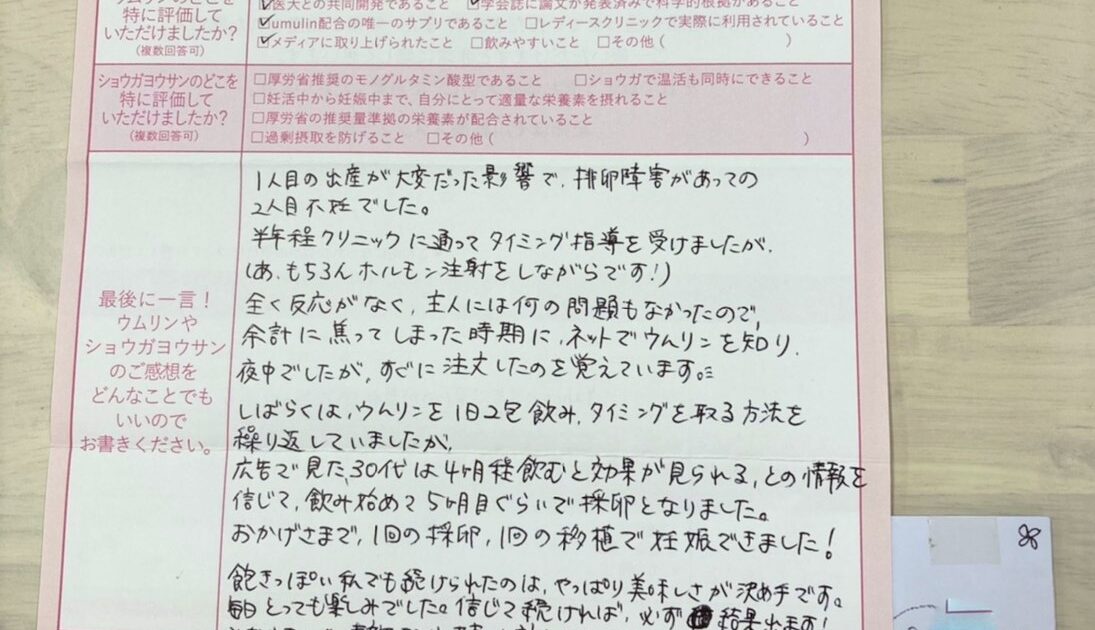 ウムリンのどこを
特に評価して
いただけましたか？
(複数回答可)
☑医大との共同開発であること ☑学会誌に論文が発表済みで科学的根拠があること
☑umulin配合の唯一のサプリであること □レディースクリニックで実際に利用されていること
☑メディアに取り上げられたこと □飲みやすいこと □その他 ( )
ショウガヨウサンのどこを
特に評価して
いただけましたか？
(複数回答可)
□厚労省推奨のモノグルタミン酸型であること □ショウガで温活も同時にできること
□妊活中から妊娠中まで、自分にとって適量な栄養素を摂れること
□厚労省の推奨量準拠の栄養素が配合されていること
□過剰摂取を防げること □その他 ( )
最後に一言！
ウムリンや
ショウガヨウサン
のご感想を
どんなことでも
いいので
お書きください。
1人目の出産が大変だった影響で、排卵障害があっての
2人目不妊でした。
半年程クリニックに通ってタイミング指導を受けましたが、
(あ、もちろんホルモン注射をしながらです！)
全く反応がなく、主人には何の問題もなかったので、
余計に焦ってしまった時期に、ネットでウムリンを知り、
夜中でしたが、すぐに注文したのを覚えています。
しばらくは、ウムリンを1日2包飲み、タイミングを取る方法を
繰り返していましたが、
広告で見た、30代は4ヶ月程飲むと効果が見られる、との情報を
信じて、飲み始めて5ヶ月目ぐらいで採卵となりました。
おかげさまで、1回の採卵、1回の移植で妊娠できました！
飽きっぽい私でも続けられたのは、やっぱり美味しさが決め手です。
毎日とっても楽しみでした。信じて続ければ、必ず結果出ます！